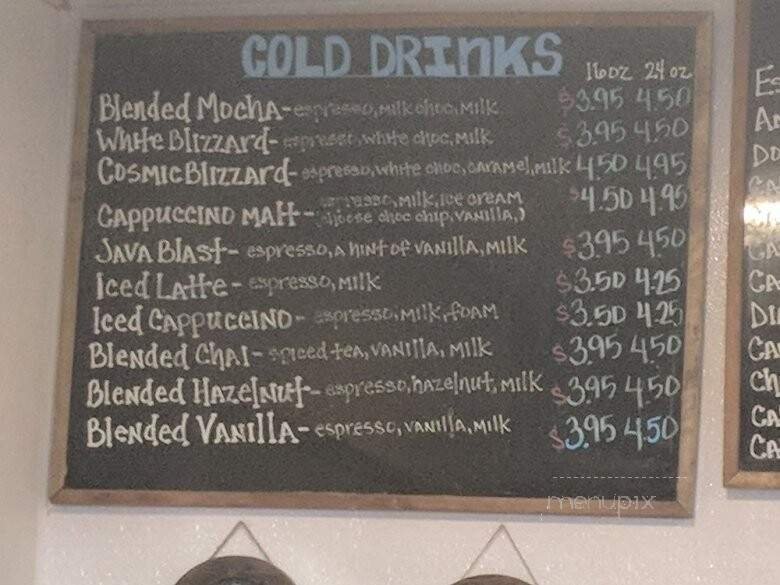 COLD DRINKS 16oz 24oz
Blended Mocha- espresso, milk choc, milk $3.95 4.50
White Blizzard- espresso, white choc, milk $3.95 4.50
Cosmic Blizzard- espresso, white choc, caramel, milk 4.50 4.95
espresso, milk, ice cream
Cappuccino Malt- (choose choc chip, vanilla,) $4.50 4.95
Java Blast- espresso, a hint of vanilla, milk $3.95 4.50
Iced Latte- espresso, milk $3.50 4.25
Iced Cappuccino- espresso, milk, foam $3.50 4.25
Blended Chai- spiced tea, vanilla, milk $3.95 4.50
Blended Hazelnut- espresso, hazelnut, milk $3.95 4.50
Blended Vanilla- espresso, vanilla, milk $3.95 4.50
menupix